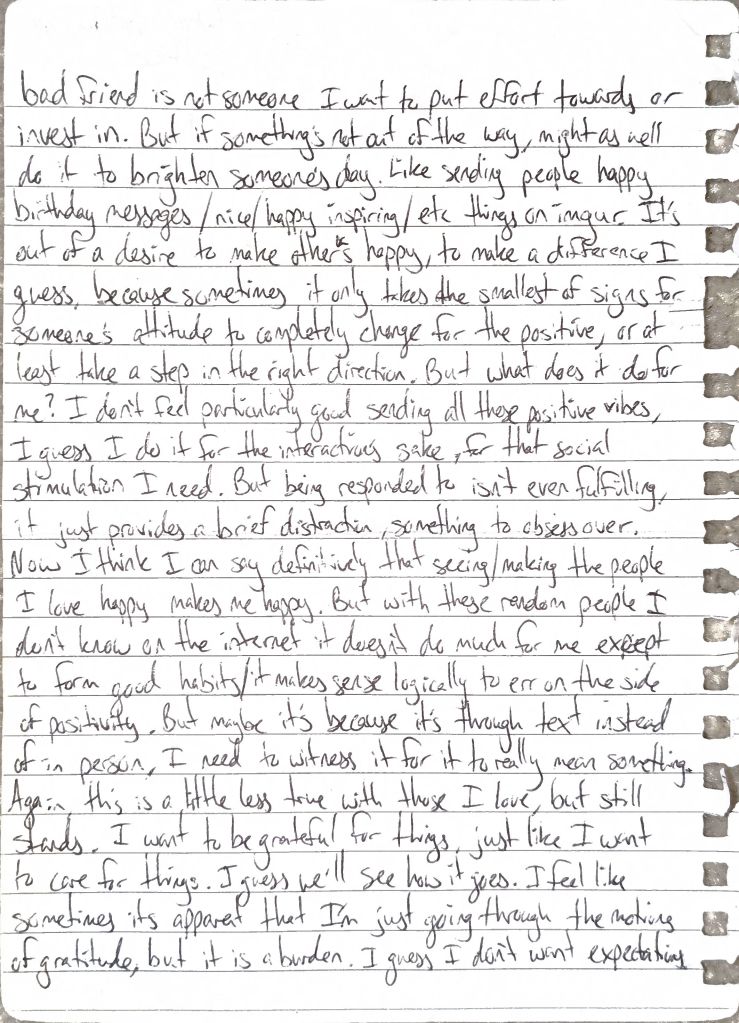 bad friend is not someone I want to put effort towards or
invest in. But if something's not out of the way, might as well
do it to brighten someone's day. Like sending people happy
birthday messages/nice/happy inspiring/etc things on imgur. It's
out of a desire to make other's happy, to make a difference I
guess, because sometimes it only takes the smallest of signs for
someone's attitude to completely change for the positive, or at
least take a step in the right direction. But what does it do for
me? I don't feel particularly good sending all these positive vibes,
I guess I do it for the interaction's sake, for that social
stimulation I need. But being responded to isn't even fulfilling,
it just provides a brief distraction, something to obsess over.
Now I think I can say definitively that seeing/making the people
I love happy makes me happy. But with these random people I
don't know on the internet it doesn't do much for me except
to form good habits/it makes sense logically to err on the side
of positivity. But maybe it's because it's through text instead
of in person, I need to witness it for it to really mean something.
Again this is a little less true with those I love, but still
stands. I want to be grateful for things, just like I want
to care for things. I guess we'll see how it goes. I feel like
sometimes its apparent that I'm just going through the motions
of gratitude, but it is a burden. I guess I don't want expectations